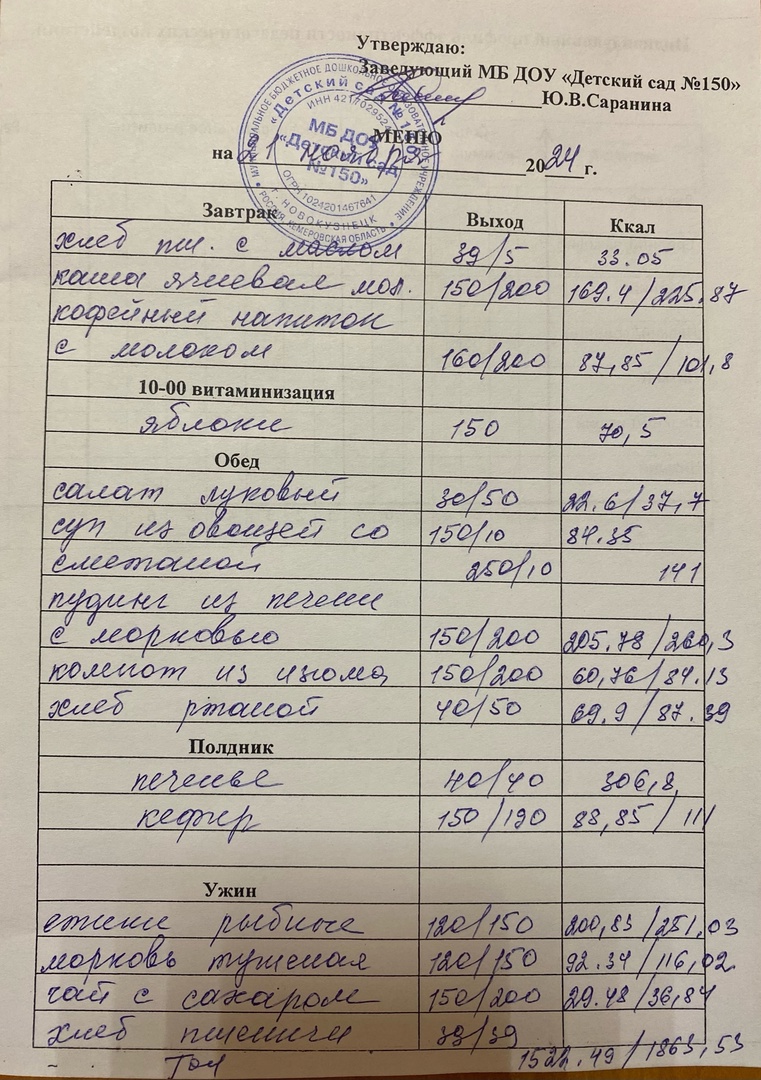 Утверждаю:
Заведующий МБ ДОУ «Детский сад №150»
Ю.В.Саранина
МУНИЦИПАЛЬНОЕ БЮДЖЕТНОЕ ДОШКОЛЬНОЕ ОБРАЗОВАТЕЛЬНОЕ УЧРЕЖДЕНИЕ
«Детский сад №150»
ИНН 4217029524
МБ ДОУ
«Детский сад
№150»
ОГРН 1024201467641
Г. НОВОКУЗНЕЦК
РОССИЯ, КЕМЕРОВСКАЯ ОБЛАСТЬ
МЕНЮ
на 21 ноября 2024 г.
Завтрак Выход Ккал
хлеб пш. с маслом 39/5 33.05
каша ячневая мол. 150/200 169.4/225.87
кофейный напиток
с молоком 160/200 87,85/101,8
10-00 витаминизация
яблоки 150 70,5
Обед
салат луковый 30/50 22.6/37,7
суп из овощей со 150/10 84.35
сметаной 250/10 141
пудинг из печени
с морковью 150/200 205.78/260,3
компот из изюма 150/200 60,76/84.13
хлеб ржаной 40/50 69.9/87.39
Полдник
печенье 40/40 306,8
кефир 150/190 88,85/111
Ужин
ежики рыбные 120/150 200,83/251,03
морковь тушеная 120/150 92.34/116,02
чай с сахаром 150/200 29.48/36,84
хлеб пшеничн 39/39
1522.49/1863,53